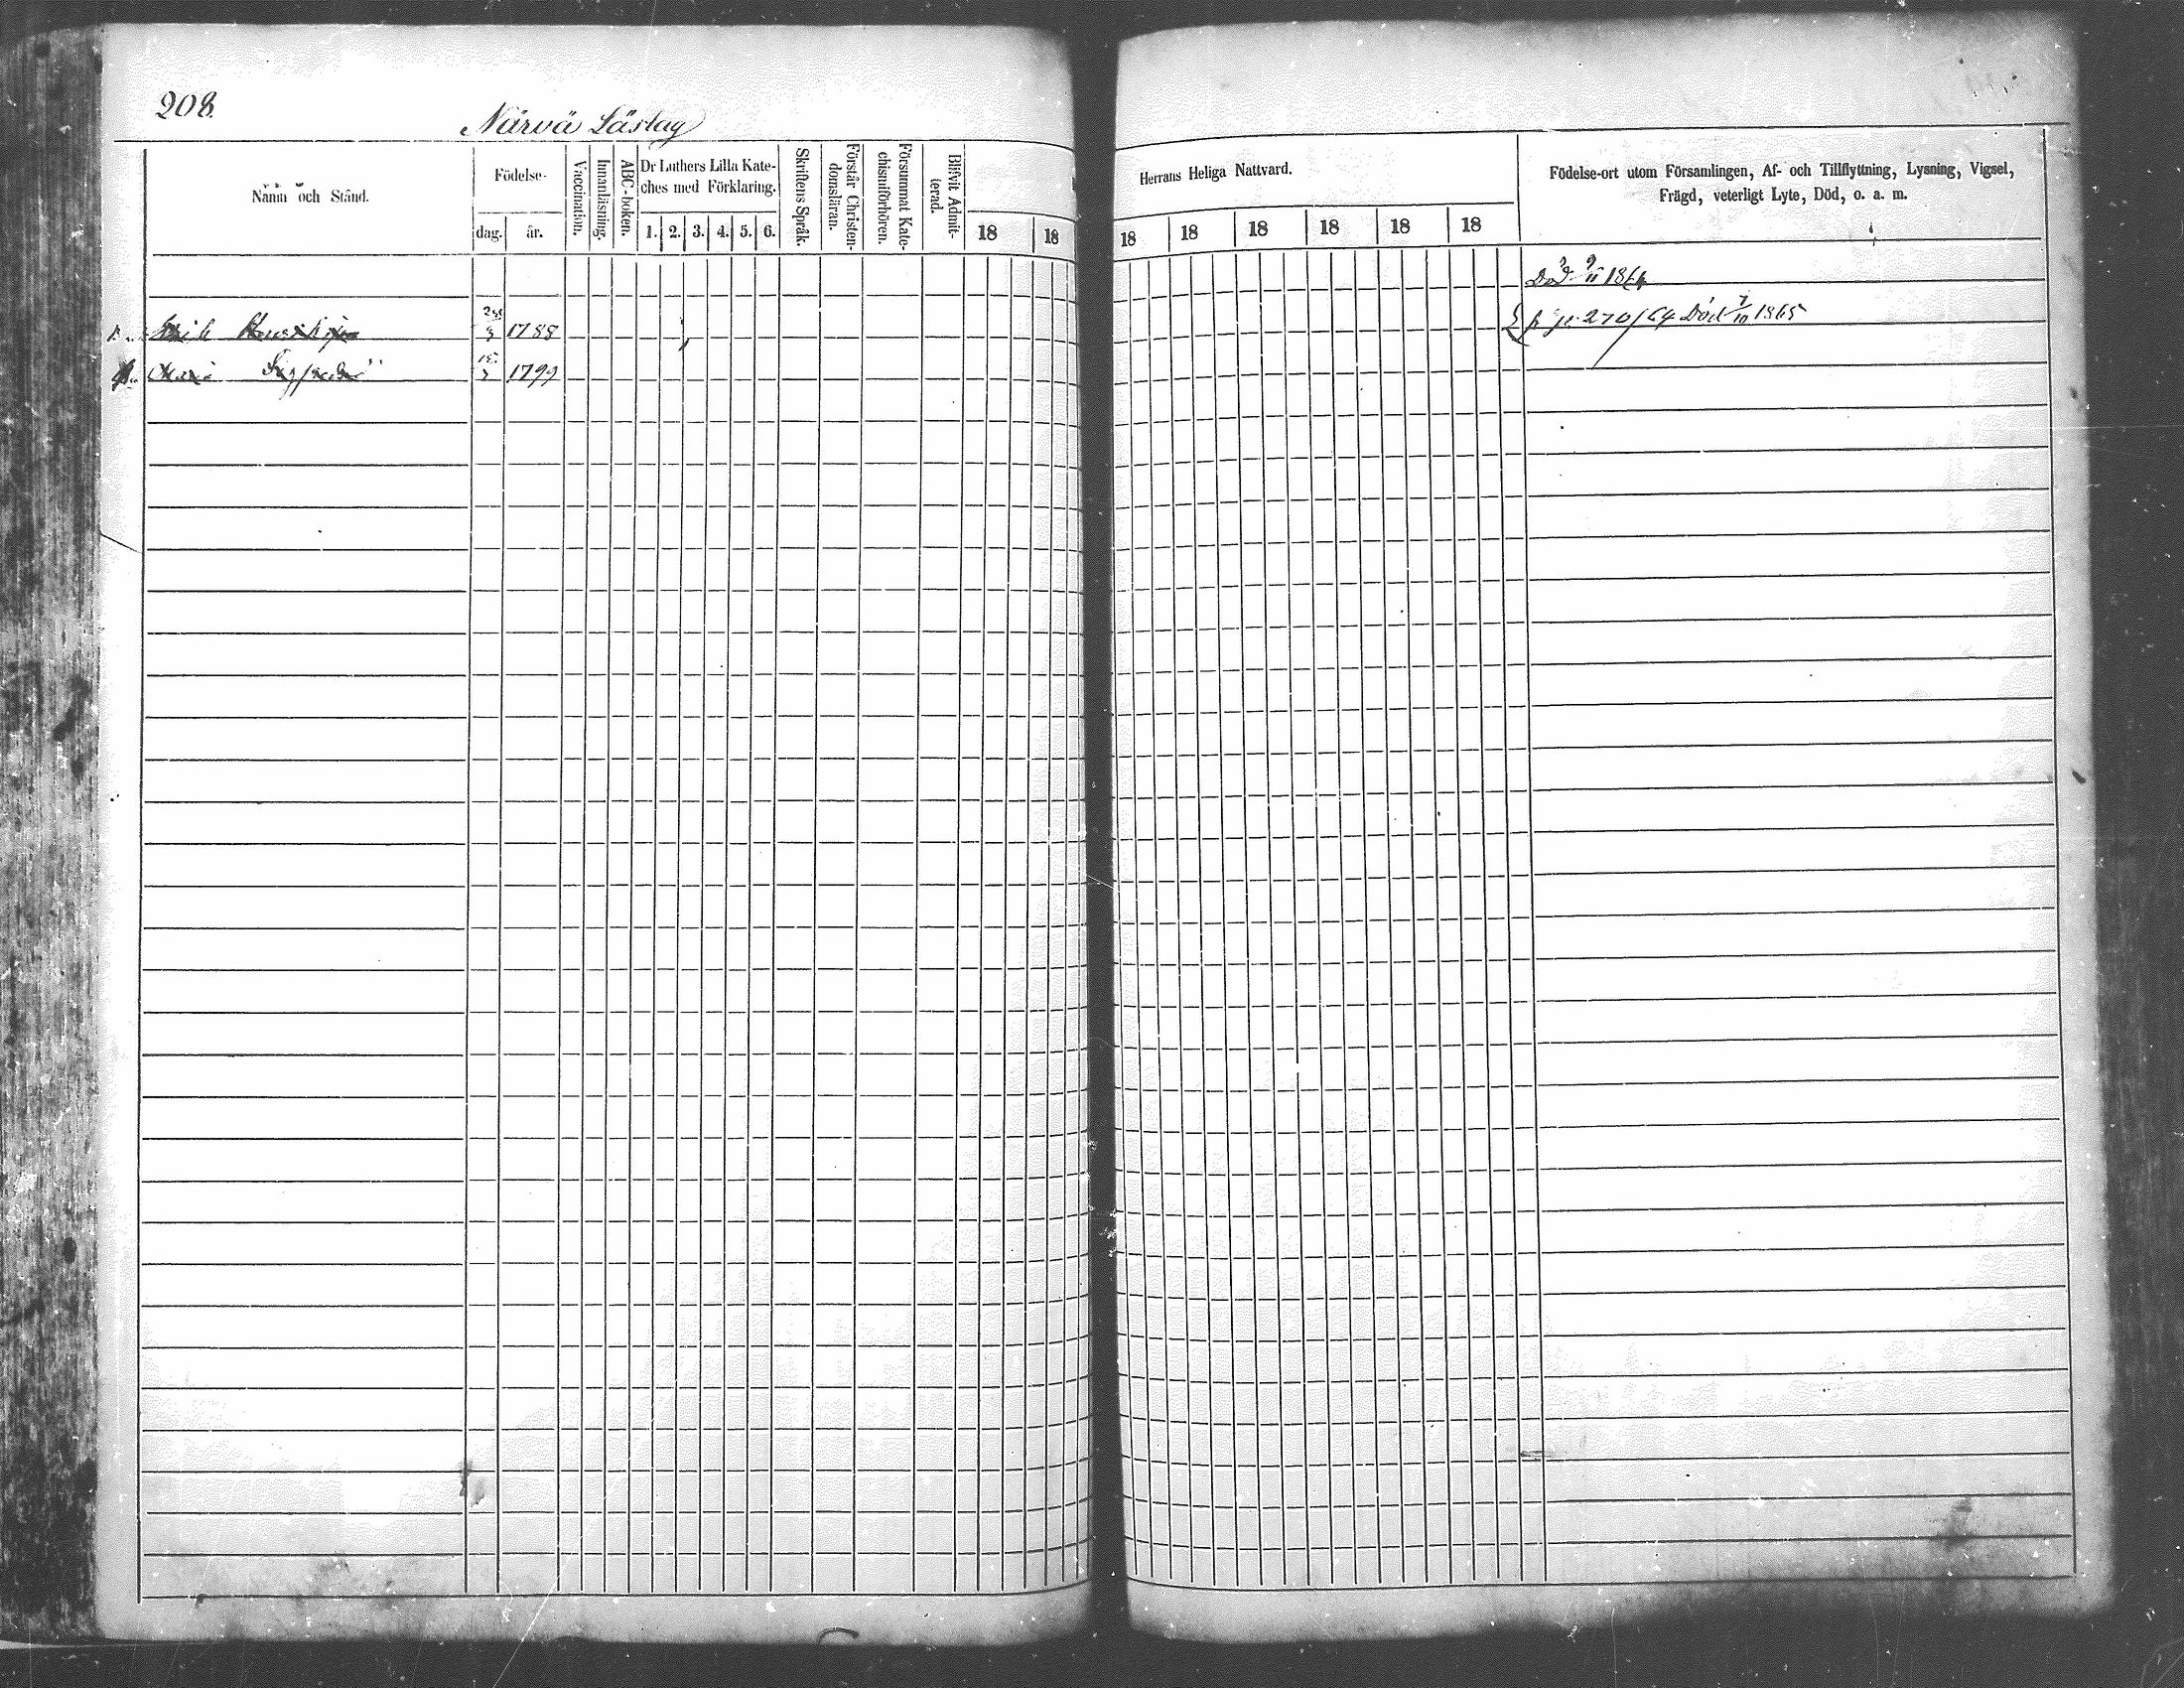 208.
Närvä Läslag
Namn och Stånd.
Födelse-
dag.
år.
Vaccination.
Innanläsning.
ABC-boken.
Dr Luthers Lilla Kate-
ches med Förklaring.
1. 2. 3. 4. 5. 6.
Skriftens Språk.
Förstår Christen-
domsläran.
Försummat Kate-
chismiförhören.
Blifvit Admit-
terad.
18 18
Herrans Heliga Nattvard.
18 18 18 18 18 18
Födelse-ort utom Församlingen, Af- och Tillflyttning, Lysning, Vigsel,
Frägd, veterligt Lyte, Död, o. a. m.
Död 9/11 1864
1788
fr p. 270/64 Död 7/10 1865
Maria 15/ 1799